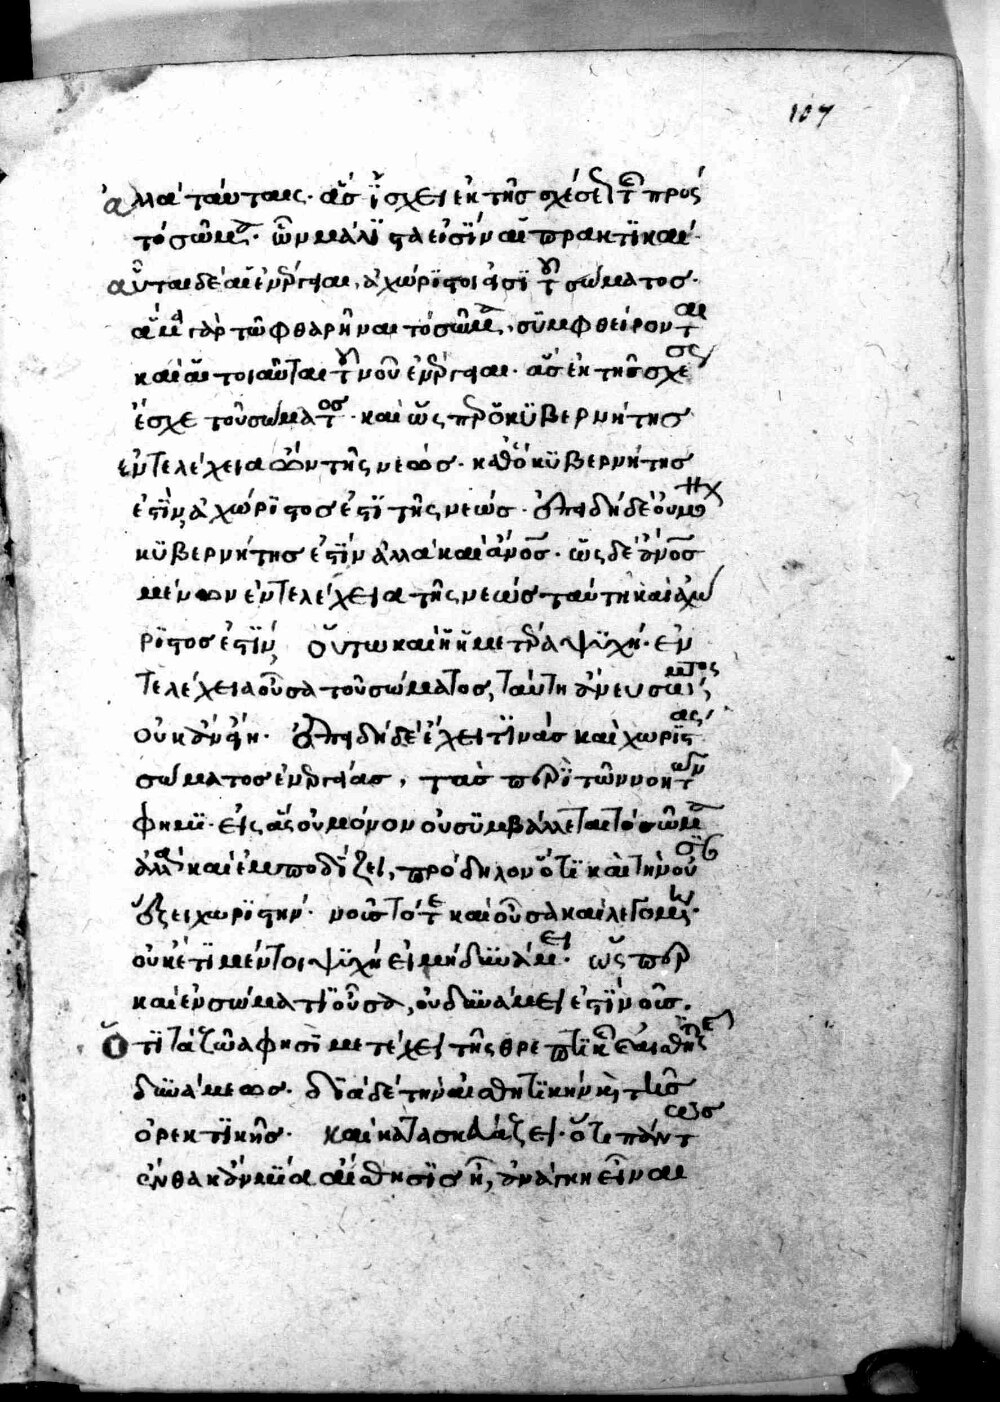 107
ἀλλὰ ταύταις· ἃς ἴσχει ἐκ τῆς σχέσεως τῆς πρὸς
τὸ σῶμα· ὧν μάλιστα εἰσὶν αἱ πρακτικαί·
αὗται δὲ αἱ ἐνέργειαι, ἀχώριστοι εἰσὶ τοῦ σώματος·
ἅμα γὰρ τῶ φθαρῆναι τὸ σῶμα, συμφθείρονται
καὶ αἱ τοιαῦται τοῦ νοῦ ἐνέργειαι· ἃς ἐκ τῆς σχέσεως
ἔσχε τοῦ σώματος· καὶ ὥσπερ ὁ κυβερνήτης
ἐντελέχεια ὢν τῆς νεώς· καθὸ κυβερνήτης
ἐστὶν, ἀχώριστος ἐστὶ τῆς νεώς· ἐπειδὴ δὲ οὐ μόνον
κυβερνήτης ἐστὶν ἀλλὰ καὶ ἄνος· ὡς δὲ ἄνος
μένων ἐντελέχεια τῆς νεὼς ταύτη καὶ ἀχώ
ριστος ἐστὶν, οὕτω καὶ ἡ ἡμετέρα ψυχή· ἐν
τελέχεια οὖσα τοῦ σώματος, ταύτη ἄνευ σώματος
οὐκ ἂν εἴη· ἐπειδὴ δὲ ἔχει τινὰς καὶ χωρὶς
σώματος ἐνεργείας, τὰς περὶ τῶν νοητῶν
φημί· εἰς ἃς οὐ μόνον οὐ συμβάλλεται τὸ σῶμα
ἀλλὰ καὶ ἐμποδίζει, πρόδηλον ὅτι καὶ τὴν οὐσίαν
ἕξει χωριστήν· νοῦς τότε καὶ οὖσα καὶ λεγομένη·
οὐκέτι μέντοι ψυχὴ εἰ μὴ δυνάμει· ὥσπερ
καὶ ἐν σώματι οὖσα, οὐ δυνάμει ἐστὶ νοῦς.
Ὅτι τὰ ζῶα φησὶ μετέχει τῆς θρεπτικῆς καὶ αἰσθητικῆς
δυνάμεως· διὰ δὲ τὴν αἰσθητικὴν καὶ τῆς
ὀρεκτικῆς· καὶ κατασκευάζει· ὅτι πάντως
ἔνθα κἂν μία αἴσθησις ἦ, ἀνάγκη εἶναι